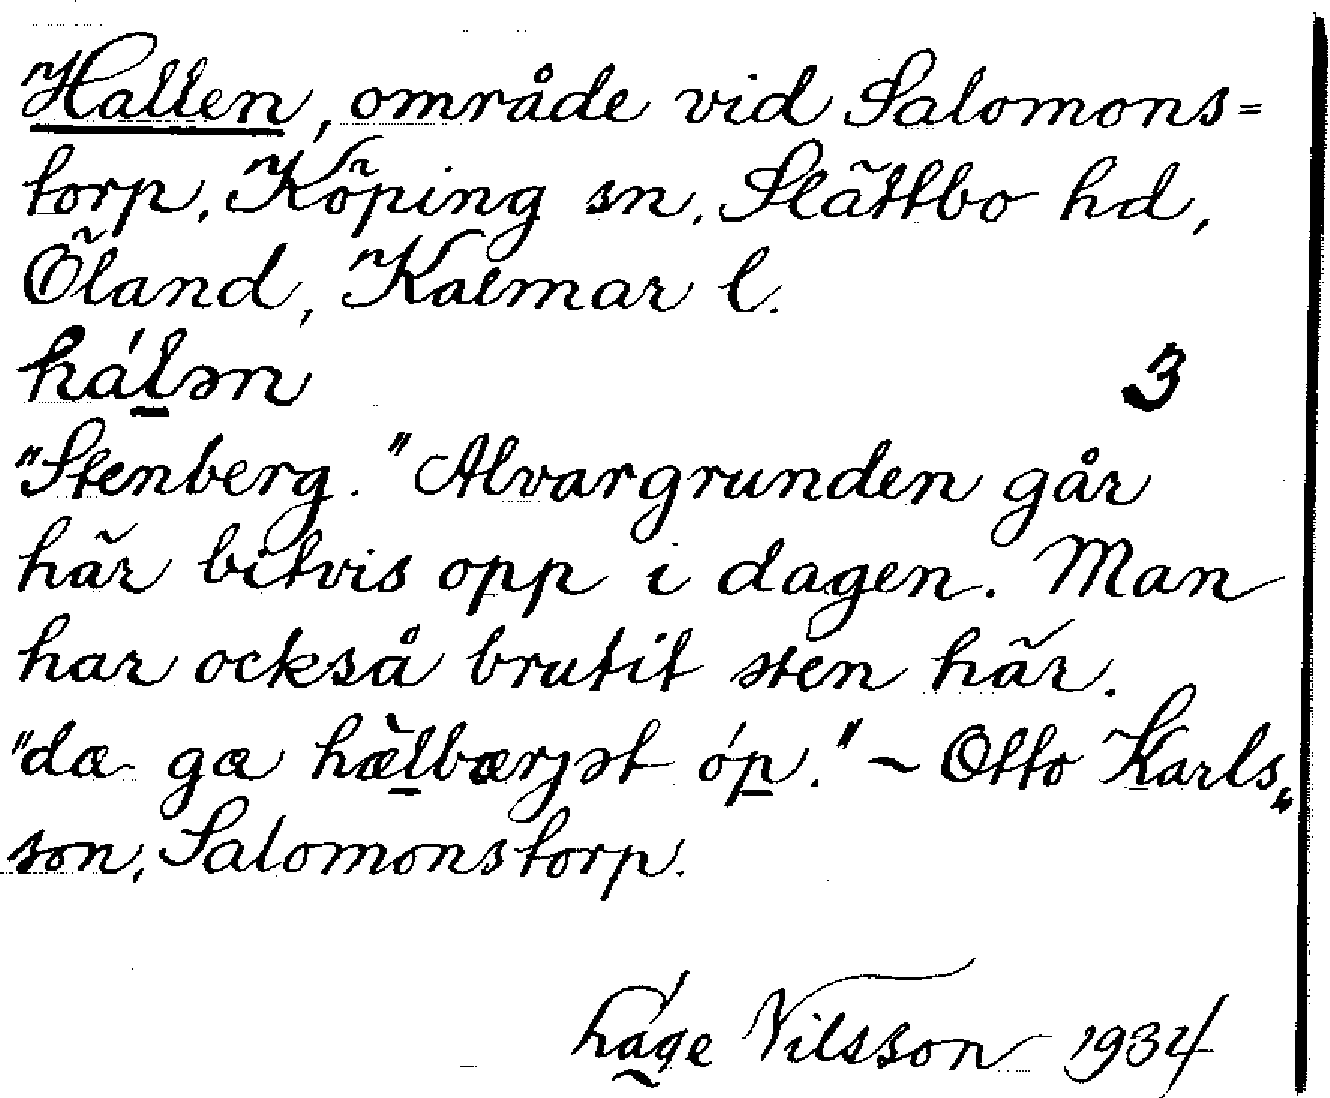 Hallen, område vid Salomons=
torp, Köping sn, Slättbo hd,
Öland, Kalmar l.
hál̲ən 3
"Stenberg." Alvargrunden går
här bitvis opp i dagen. Man
har också brutit sten här.
"dæ gæ hæ̀l̲bærjət óp̲." - Otto Karls„
son, Salomonstorp.
Nilsson 1934